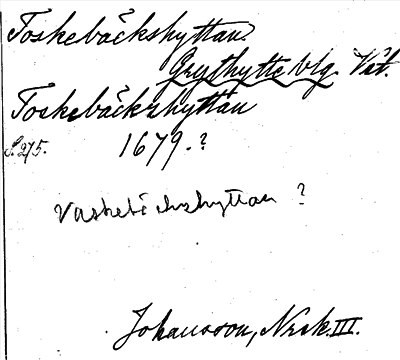 Toskebäckshyttan.
Grythytte blg. Vstm.
Toskebäckshyttan
S. 275. 1679.?
Vaskebäckshyttan ?
Johansson, Norsk. III.